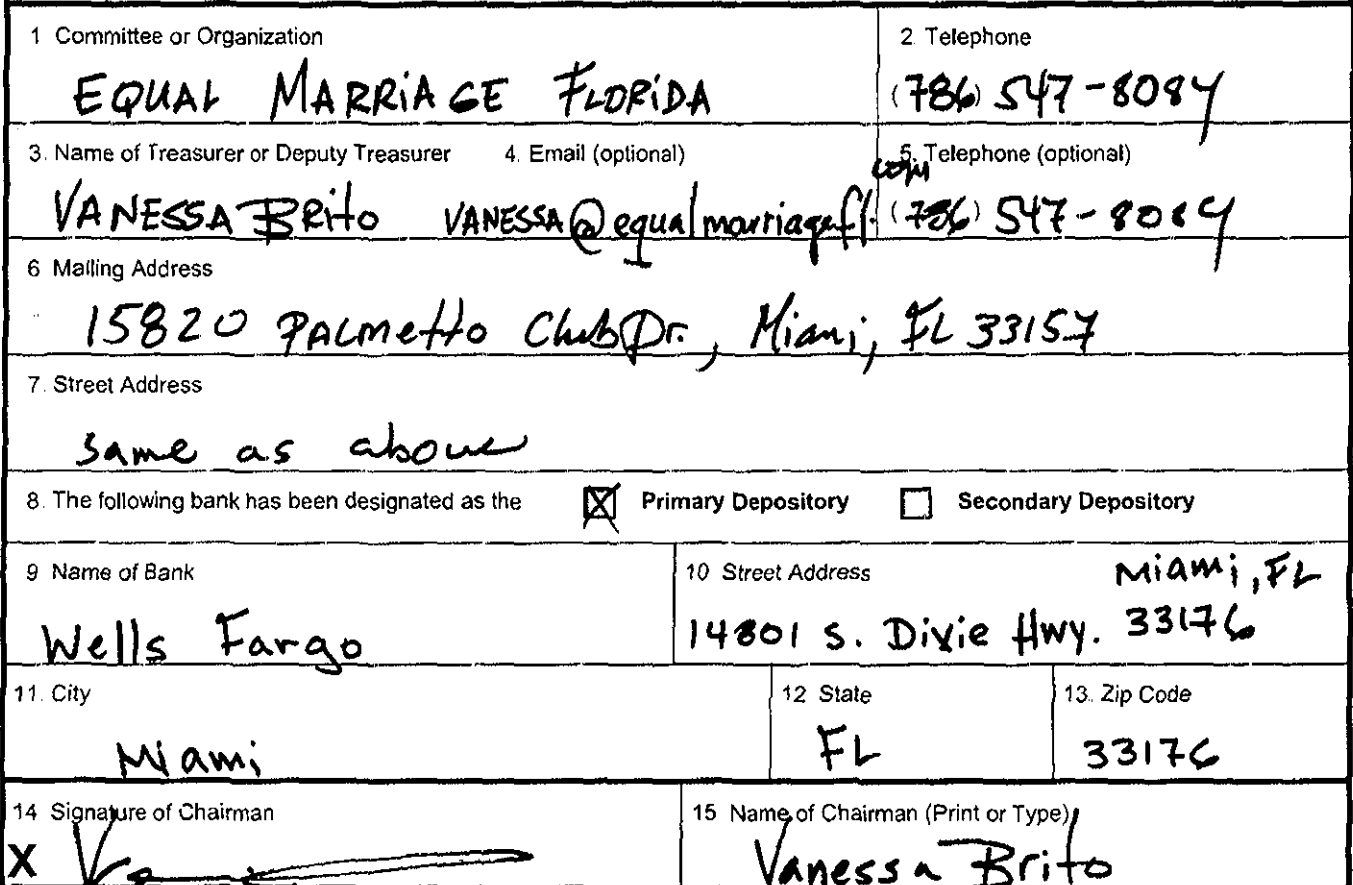 1 Committee or Organization
2. Telephone
EQUAL MARRIAGE FLORIDA
(786) 547-8084
3. Name of Treasurer or Deputy Treasurer 4. Email (optional) 5. Telephone (optional)
VANESSA BRito VANESSA@equalmarriagefl.com (786) 547-8084
6 Mailing Address
15820 PALMetto Club Dr., Miami, FL 33157
7. Street Address
same as above
8. The following bank has been designated as the X Primary Depository Secondary Depository
9 Name of Bank
Wells Fargo
10 Street Address
Miami, FL
14801 S. Dixie Hwy. 33176
11. City
Miami
12 State
FL
13. Zip Code
33176
14 Signature of Chairman
X
15 Name of Chairman (Print or Type)
Vanessa Brito